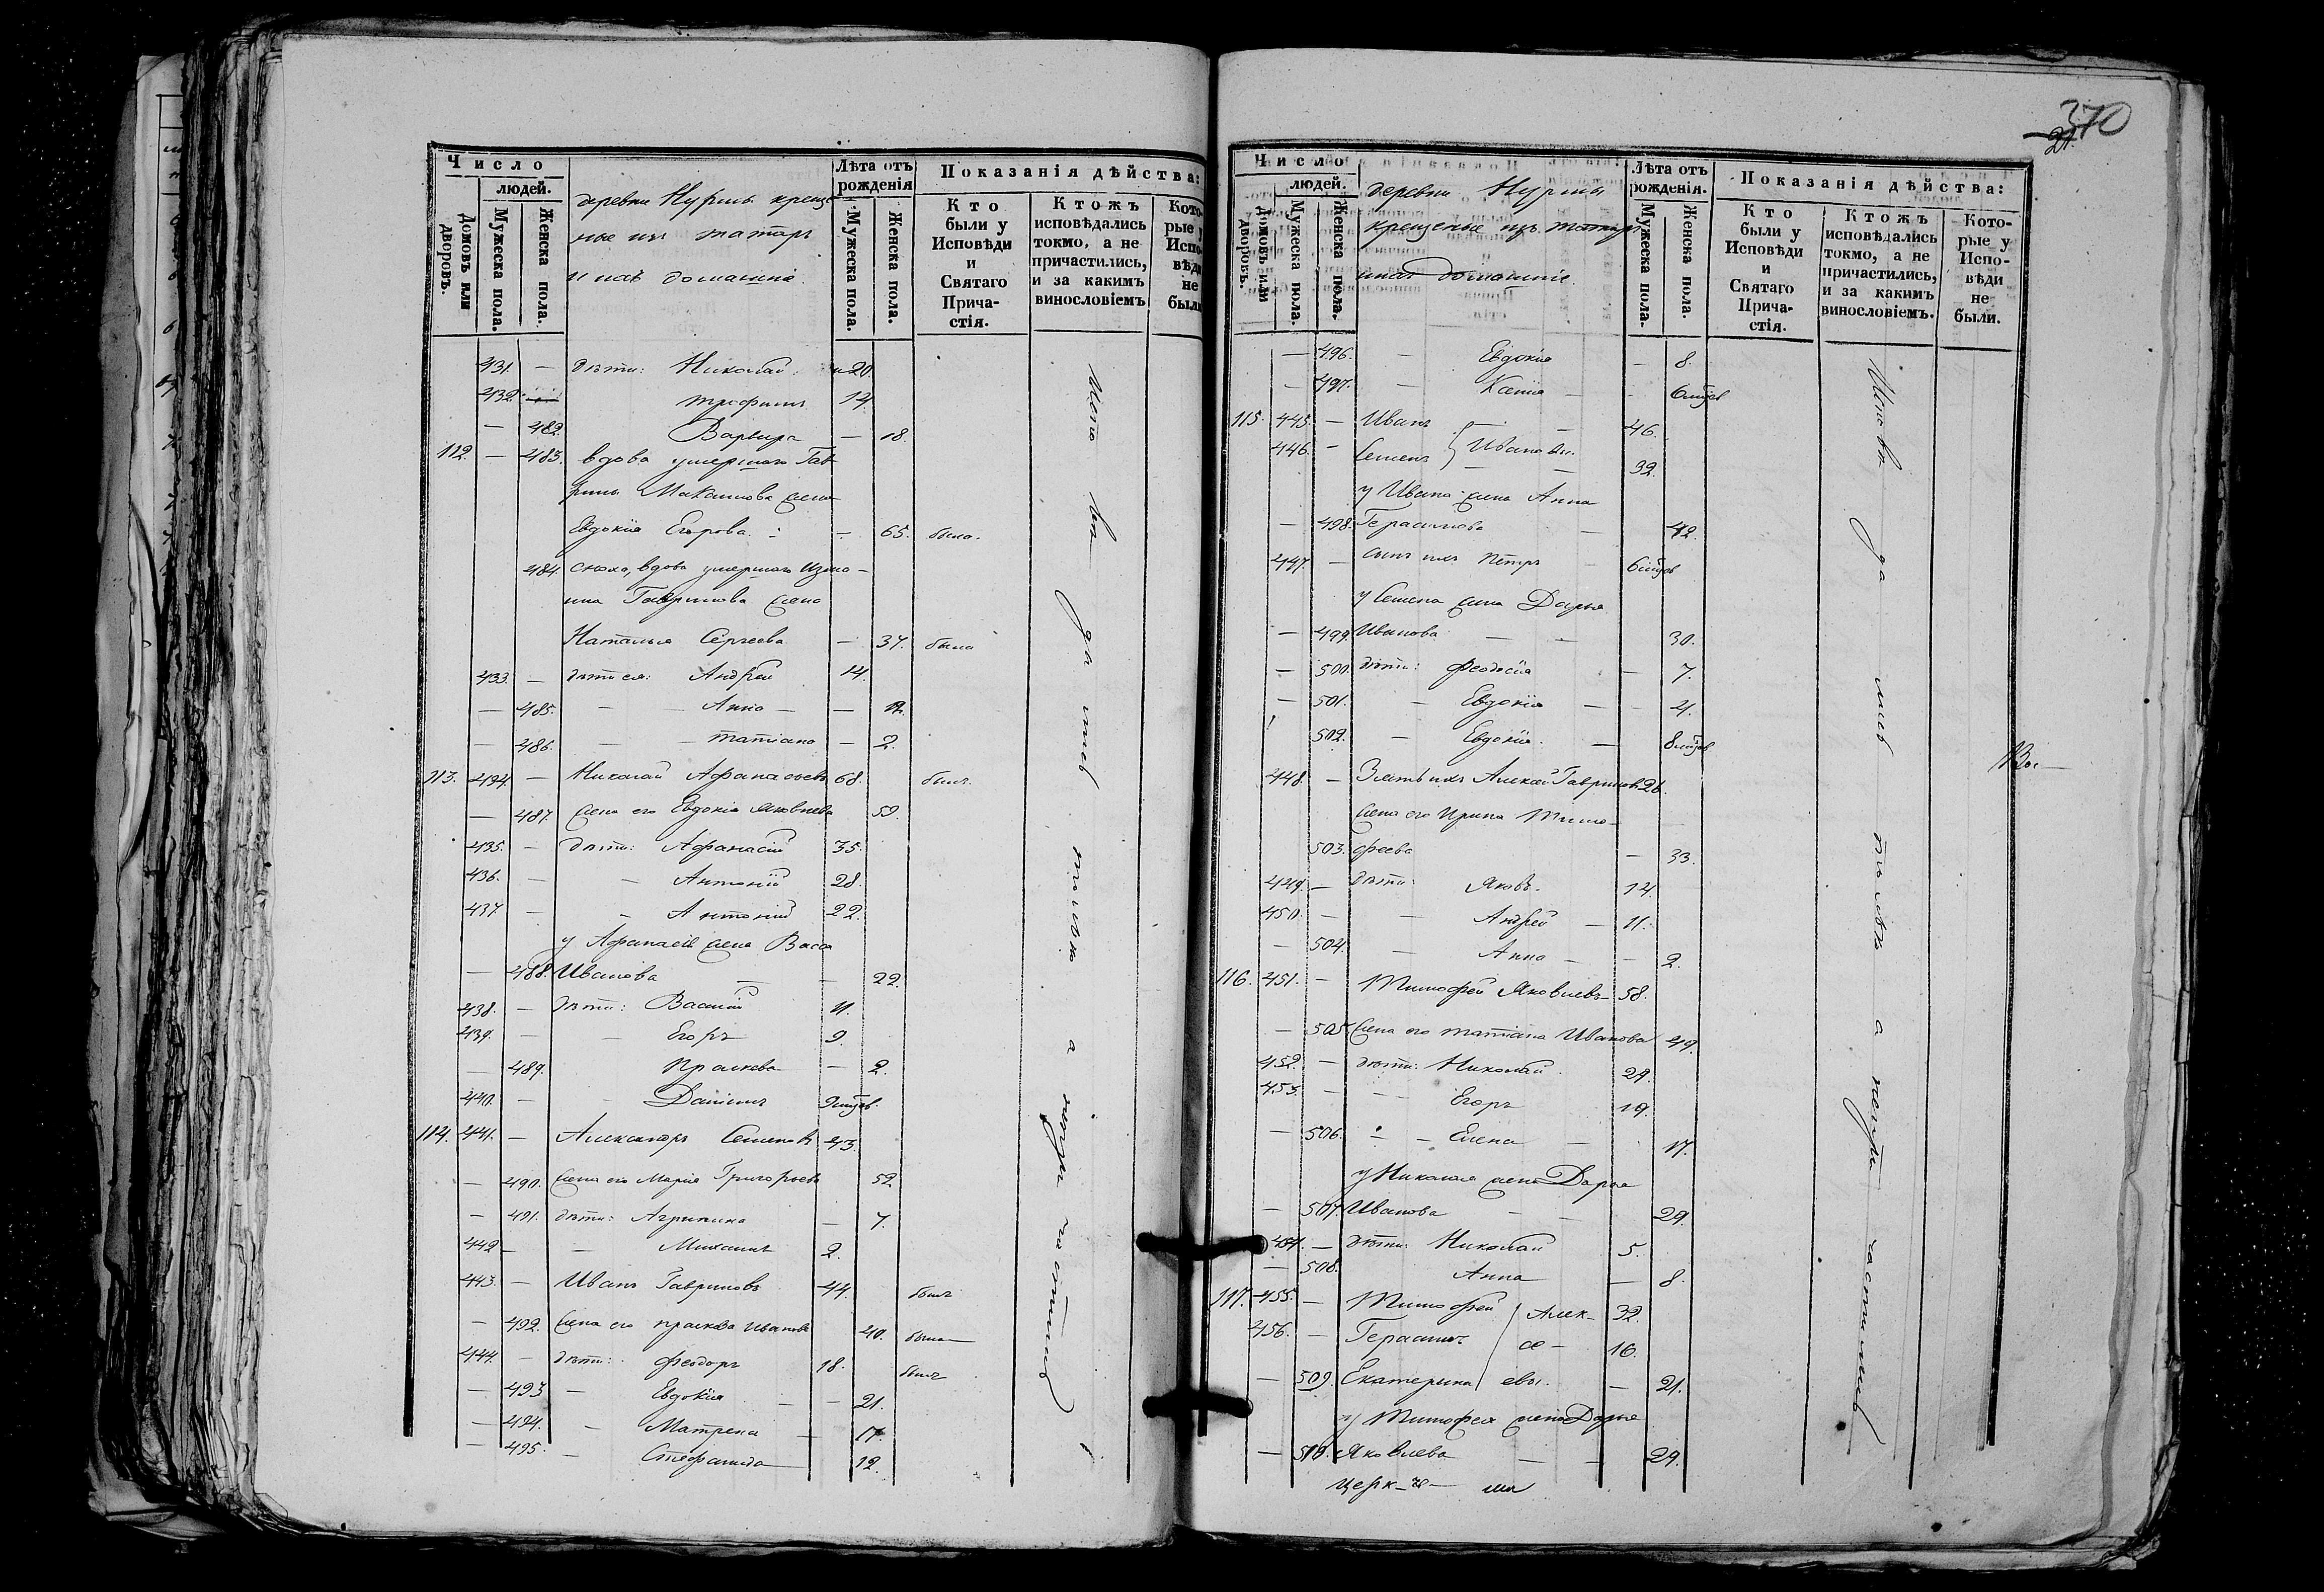 370
21.
Число
людей.
Домовъ или дворовъ.
Мужеска пола.
Женска пола.
деревни Нурмы креще-
ные изъ татаръ
и ихъ домашніе.
Лѣта отъ рожденія
Мужеска пола.
Женска пола.
Показанія дѣйства:
Кто были у Исповѣди и Святаго Прича-стія.
Ктожъ исповѣдались токмо, а не причастились, и за какимъ винословіемъ
Кото-рые у Испо-вѣди не были
431. — дѣти: Николай 20.
432. Трофимъ 14.
— 482. Варвара — 18.
112. — 483. вдова умершаго Гав-
рила Максимова жена
Евдокія Егорова — 65. была.
484. сноха, вдова умершаго
Гаврилова жена
Наталья Сергеева — 37. была
433. — дѣти ея: Андрей 14.
— 485. — Анна — — 12.
— 486. — Татіана — 2.
113. 434. — Николай Афанасьевъ 68. былъ.
— 487. жена его Евдокія Яковлева 59.
435. — дѣти: Афанасій 35.
436. — — Антоній 28.
437. — — Антоній 22.
у Афанасія жена Васса
— 488. Иванова — — 22.
438. — дѣти: Василій 11.
439. — — Егоръ 9.
— 489. Прасковья — 2.
440. — — Даніилъ 9 мцов.
114. 441. — Александръ Семеновъ 43.
— 490. жена его Марія Григорьева 52.
— 491. дѣти: Агрипина — 7.
442 — — Михаилъ 2.
443. — Иванъ Гавриловъ 44. былъ
— 492. жена его Прасковья Иванова 40. была
444. — дѣти: Феодоръ 18. былъ
— 493 — Евдокія — — 21.
— 494. — Матрена — 17.
— 495. — Стефанида 12.
Число
людей.
Домовъ или дворовъ.
Мужеска пола.
Женска пола.
деревни Нурмы
крещеные изъ татаръ
и ихъ домашніе.
Лѣта отъ рожденія.
Мужеска пола.
Женска пола.
Показанія дѣйства:
Кто были у Исповѣди и Святаго Прича-стія.
Ктожъ исповѣдались токмо, а не причастились, и за какимъ винословіемъ.
Кото-рые у Испо-вѣди не были.
— 496. — Евдокія — 8.
— 497. — Ксенія — - 6 мцов
115. 445. — Иванъ — — 46.
446. — Семенъ } Ивановы. 32.
у Ивана жена Анна
— 498. Герасимова — 42.
447. — сынъ ихъ Петръ — 6 мцов
у Семена жена Дарья
— 499. Иванова — — 30.
— 500. дѣти: Феодосія — 7.
— 501. — Евдокія — 4.
502. — Евдокія. — 8 мцов
448. — Зять ихъ Алексѣй Гавриловъ 26.
жена его Ирина Тимо-
503. феева — 33.
449. — дѣти: Яковъ. 14.
450. — — Андрей — 11.
— 504. — Анна — — 2.
116. 451. — Тимофей Яковлевъ 58.
— 505. жена его Татіана Иванова 49.
452. — дѣти: Николай. 29.
453. — — Егоръ 19.
— 506. — — Елена — 17.
у Николая жена Дарья
— 507. Иванова — — 29.
454. — дѣти: Николай 5.
— 508. Анна — 8.
117. 455. — Тимофей 32.
456. — Герасимъ } Алек- 16.
— 509. Екатерина сѣевы. — 21.
у Тимофея жена Дарья
— 510. Яковлева — — 29.